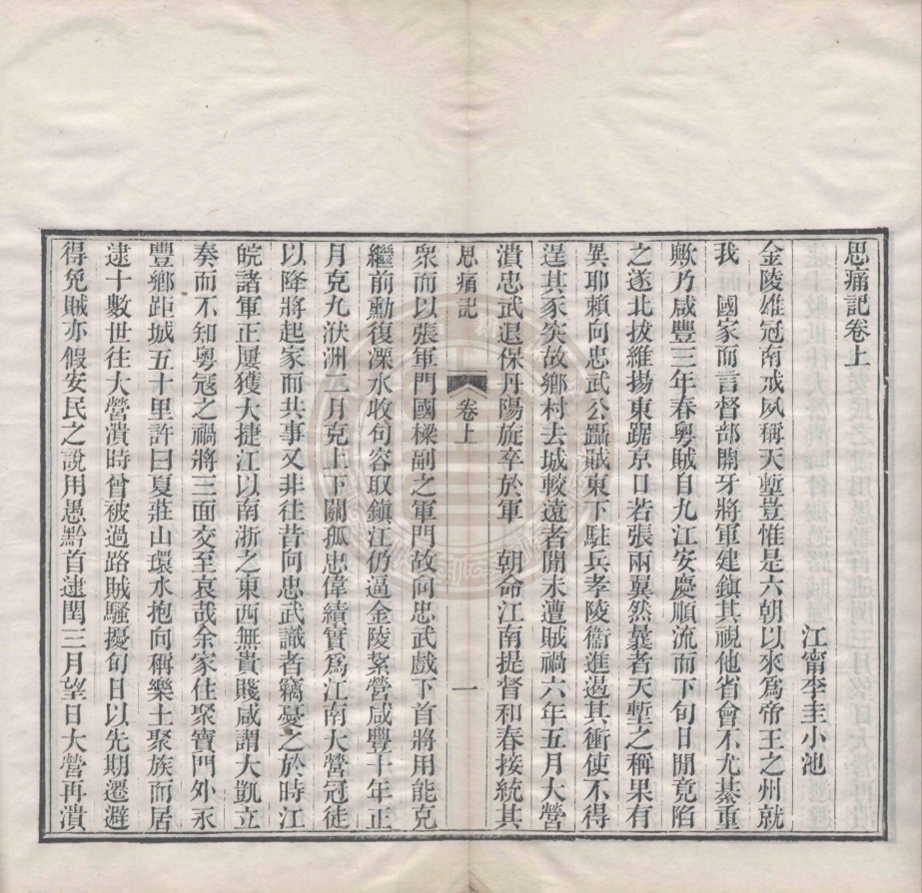 思痛記卷上
江甯李圭小池
金陵雄冠南戒夙稱天塹豈惟是六朝以來爲帝王之州就
我 國家而言督部開牙將軍建鎮其視他省會不尤綦重
歟乃咸豐三年春粵賊自九江安慶順流而下旬日閒竟陷
之遂北拔維揚東踞京口若張兩翼然曩者天塹之稱果有
異耶賴向忠武公躡賊東下駐兵孝陵衞進遏其衝使不得
逞其豕突故鄉村去城較遠者閒未遭賊禍六年五月大營
潰忠武退保丹陽旋卒於軍 朝命江南提督和春接統其
思痛記 卷上 一
衆而以張軍門國樑副之軍門故向忠武戲下首將用能克
繼前勳復溧水收句容取鎮江仍逼金陵紮營咸豐十年正
月克九洑洲三月克上下關孤忠偉績實爲江南大營冠徒
以降將起家而共事又非往昔向忠武識者竊憂之於時江
皖諸軍正屢獲大捷江以南浙之東西無貴賤咸謂大凱立
奏而不知粵寇之禍將三面交至哀哉余家住聚寶門外永
豐鄉距城五十里許曰夏莊山環水抱向稱樂土聚族而居
逮十數世往大營潰時曾被過路賊騷擾旬日以先期遷避
得免賊亦假安民之說用愚黔首逮閏三月望日大營再潰